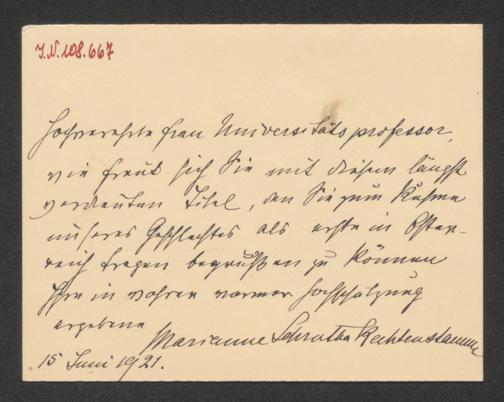 I.N. 108.667
Hochverehrte Frau Universitätsprofessor,
wie freut sich Sie mit diesem längst
verdienten Titel, den Sie zum Ruhme
unseres Geschlechtes als erste in Öster-
reich tragen begrüßen zu können
Ihre in wahrer warmer Hochschätzung
ergebene
Marianne Schrutka Rechtenstamm
15 Juni 1921.